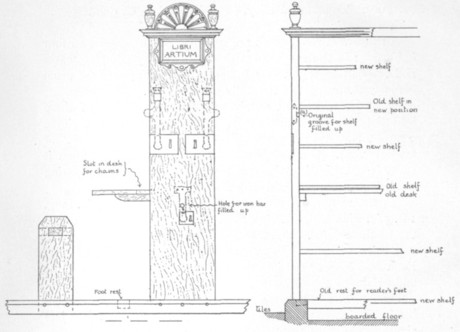 LIBRI
ARTIUM
Slot in desk
for chains
Hole for iron bar
filled up
Foot rest
new shelf
Old shelf in
new position
Original
groove for shelf
filled up
new shelf
Old shelf
old desk
new shelf
Old rest for reader's feet
new shelf
Tiles
boarded floor